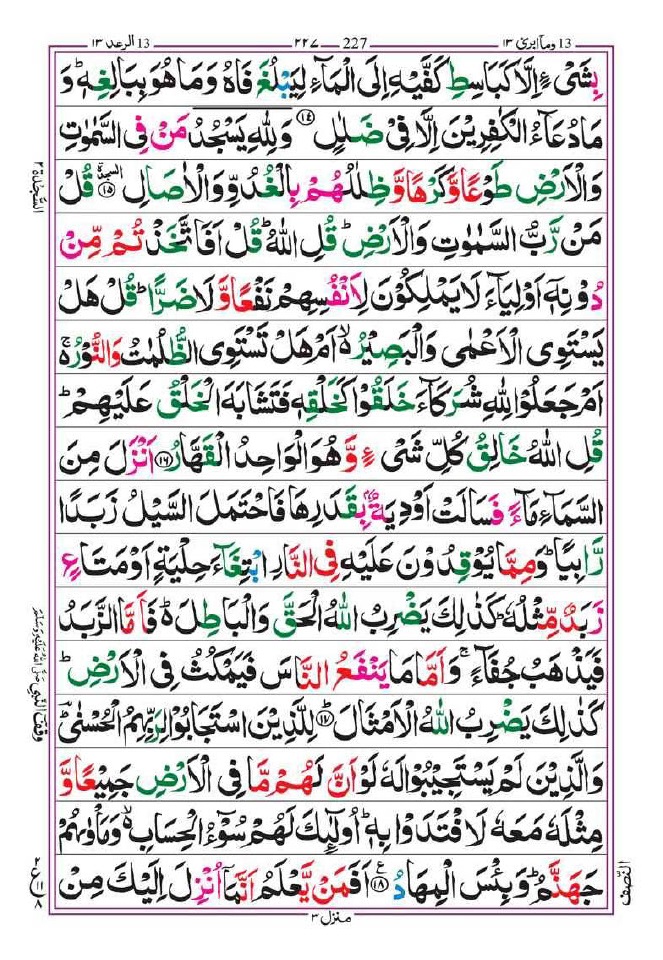 13 وما ابرئ ١٣
227 ٢٢٧
13 الرعد ١٣
بِشَىْءٍ اِلَّا كَبَاسِطِ كَفَّيْهِ اِلَى الْمَآءِ لِيَبْلُغَ فَاهُ وَمَا هُوَ بِبَالِغِهٖ ؕ وَ
مَا دُعَآءُ الْكٰفِرِيْنَ اِلَّا فِىْ ضَلٰلٍ ﴿۱۴﴾ وَلِلّٰهِ يَسْجُدُ مَنْ فِى السَّمٰوٰتِ
وَالْاَرْضِ طَوْعًا وَّكَرْهًا وَّظِلٰلُهُمْ بِالْغُدُوِّ وَالْاٰصَالِ السجدة ﴿۱۵﴾ قُلْ
السَّجْدَة ٢
مَنْ رَّبُّ السَّمٰوٰتِ وَالْاَرْضِ ؕ قُلِ اللّٰهُ ؕ قُلْ اَفَاتَّخَذْتُمْ مِّنْ
دُوْنِهٖۤ اَوْلِيَآءَ لَا يَمْلِكُوْنَ لِاَنْفُسِهِمْ نَفْعًا وَّلَا ضَرًّا ؕ قُلْ هَلْ
يَسْتَوِى الْاَعْمٰى وَالْبَصِيْرُ ۙ اَمْ هَلْ تَسْتَوِى الظُّلُمٰتُ وَالنُّوْرُ ۚ
اَمْ جَعَلُوْا لِلّٰهِ شُرَكَآءَ خَلَقُوْا كَخَلْقِهٖ فَتَشَابَهَ الْخَلْقُ عَلَيْهِمْ ؕ
قُلِ اللّٰهُ خَالِقُ كُلِّ شَىْءٍ وَّهُوَ الْوَاحِدُ الْقَهَّارُ ﴿۱۶﴾ اَنْزَلَ مِنَ
السَّمَآءِ مَآءً فَسَالَتْ اَوْدِيَةٌۢ بِقَدَرِهَا فَاحْتَمَلَ السَّيْلُ زَبَدًا
رَّابِيًا ؕ وَمِمَّا يُوْقِدُوْنَ عَلَيْهِ فِى النَّارِ ابْتِغَآءَ حِلْيَةٍ اَوْ مَتَاعٍ
زَبَدٌ مِّثْلُهٗ ؕ كَذٰلِكَ يَضْرِبُ اللّٰهُ الْحَقَّ وَالْبَاطِلَ ؕ فَاَمَّا الزَّبَدُ
فَيَذْهَبُ جُفَآءً ۚ وَاَمَّا مَا يَنْفَعُ النَّاسَ فَيَمْكُثُ فِى الْاَرْضِ ؕ
كَذٰلِكَ يَضْرِبُ اللّٰهُ الْاَمْثَالَ ؕ ﴿۱۷﴾ لِلَّذِيْنَ اسْتَجَابُوْا لِرَبِّهِمُ الْحُسْنٰى ؕ
وقف النبی صَلَّى اللّٰهُ عَلَيْهِ وَسَلَّمَ
وَالَّذِيْنَ لَمْ يَسْتَجِيْبُوْا لَهٗ لَوْ اَنَّ لَهُمْ مَّا فِى الْاَرْضِ جَمِيْعًا وَّ
مِثْلَهٗ مَعَهٗ لَافْتَدَوْا بِهٖ ؕ اُولٰٓئِكَ لَهُمْ سُوْٓءُ الْحِسَابِ ۙ وَمَاْوٰٮهُمْ
جَهَنَّمُ ؕ وَبِئْسَ الْمِهَادُ ﴿۱۸﴾ اَفَمَنْ يَّعْلَمُ اَنَّمَاۤ اُنْزِلَ اِلَيْكَ مِنْ
النّصف
منزل ٣